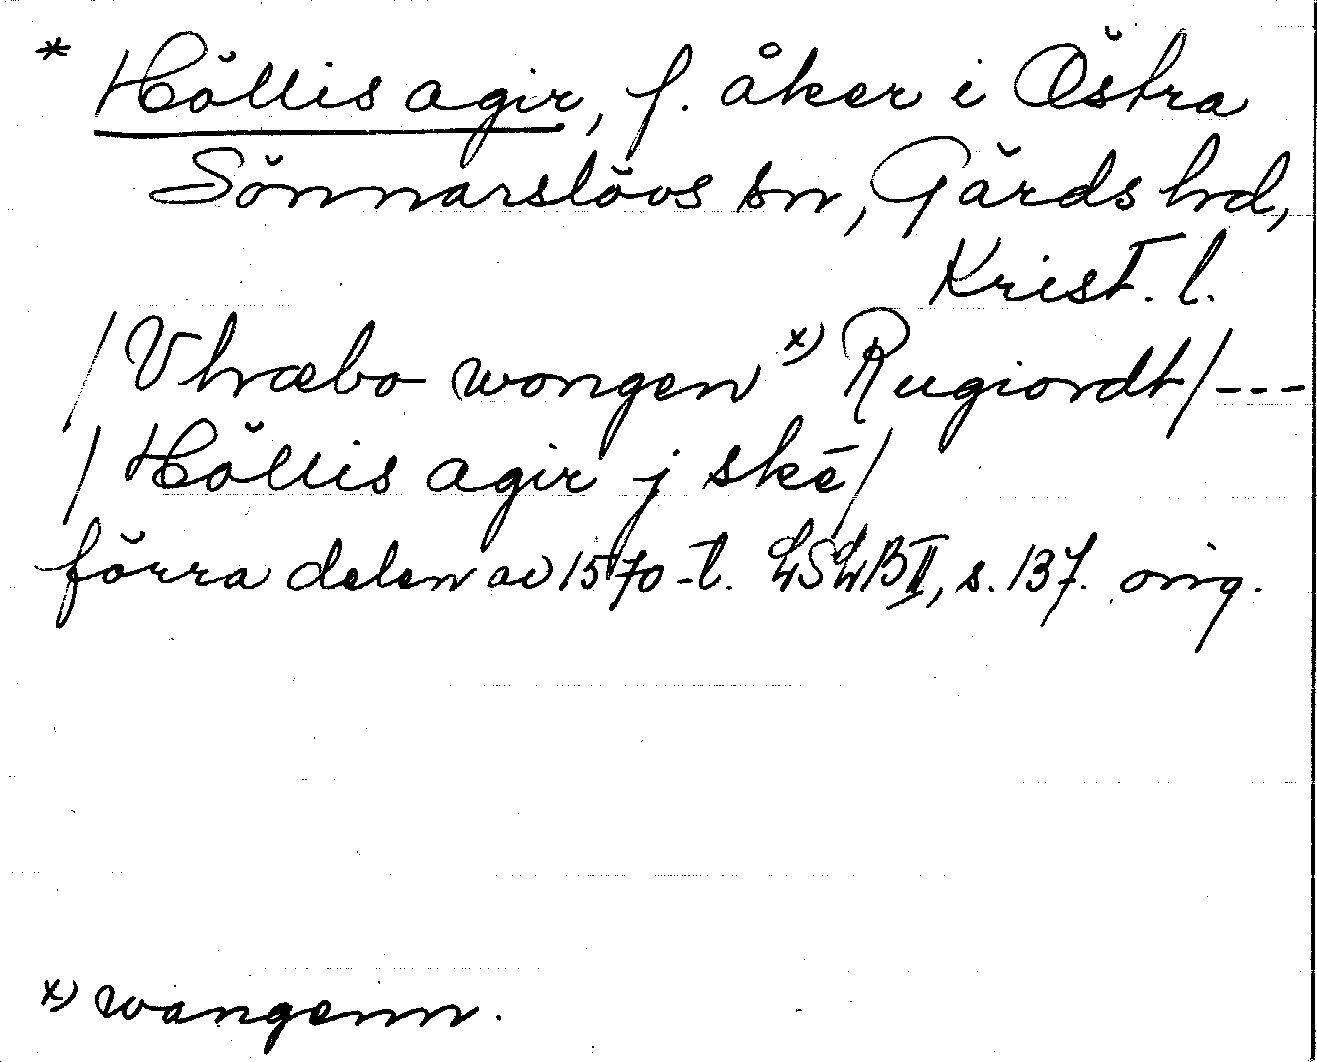 * Höllis agir, f. åker i Östra
Sönnarslövs sn, Gärds hd,
Krist. l.
/Vhræbo wongen x) Rugiordt/---
/Höllis agir j skē/
förra delen av 1570-t. LSLB II, s. 137. orig.
x) wangenn.